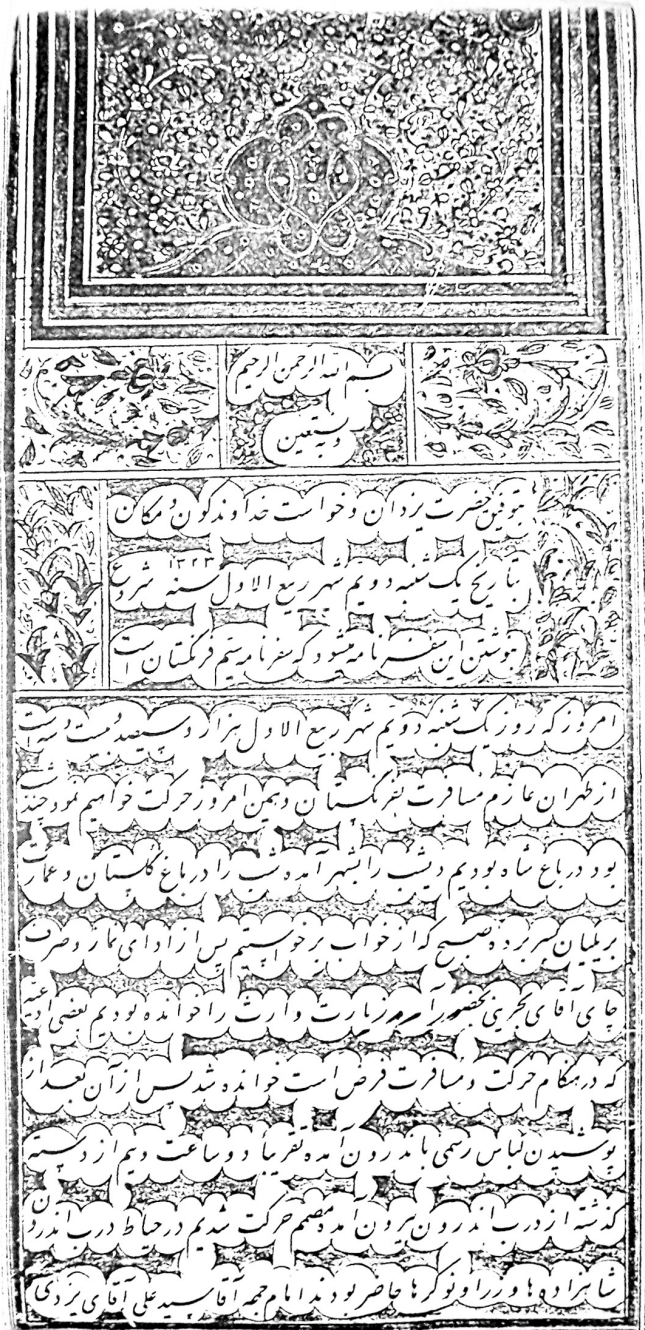 بسم الله الرحمن الرحیم
وبه نستعین
بتوفیق حضرت یزدان و خواست خداوند کون و مکان
بتاریخ یک شنبه دویم شهر ربیع الاول سنه ۱۳۲۳ شروع
بنوشتن این سفرنامه میشود که سفرنامه سیم فرنگستان است
امروز که روز یک شنبه دویم شهر ربیع الاول هزار و سیصد و بیست و سه است
از طهران عازم مسافرت بفرنگستان و همین امروز حرکت خواهیم نمود چند شب
بود در باغ شاه بودیم دیشب را بشهر آمده شب را در باغ گلستان و عمارت
بریلیان بسر برده صبح که از خواب برخواستیم پس از ادای نماز و صرف
چای آقای بحرینی بحضور آمد زیارت وارث را خوانده بودیم بعضی ادعیه
که در هنگام حرکت و مسافرت فرض است خوانده شد پس از آن بعد از
پوشیدن لباس رسمی باندرون آمده تقریباً دو ساعت و نیم از دسته
گذشته از درب اندرون بیرون آمده مصمم حرکت شدیم در حیاط درب اندرون
شاهزاده ها و وزرا و نوکرها حاضر بودند امام جمعه آقا سید علی آقای یزدی